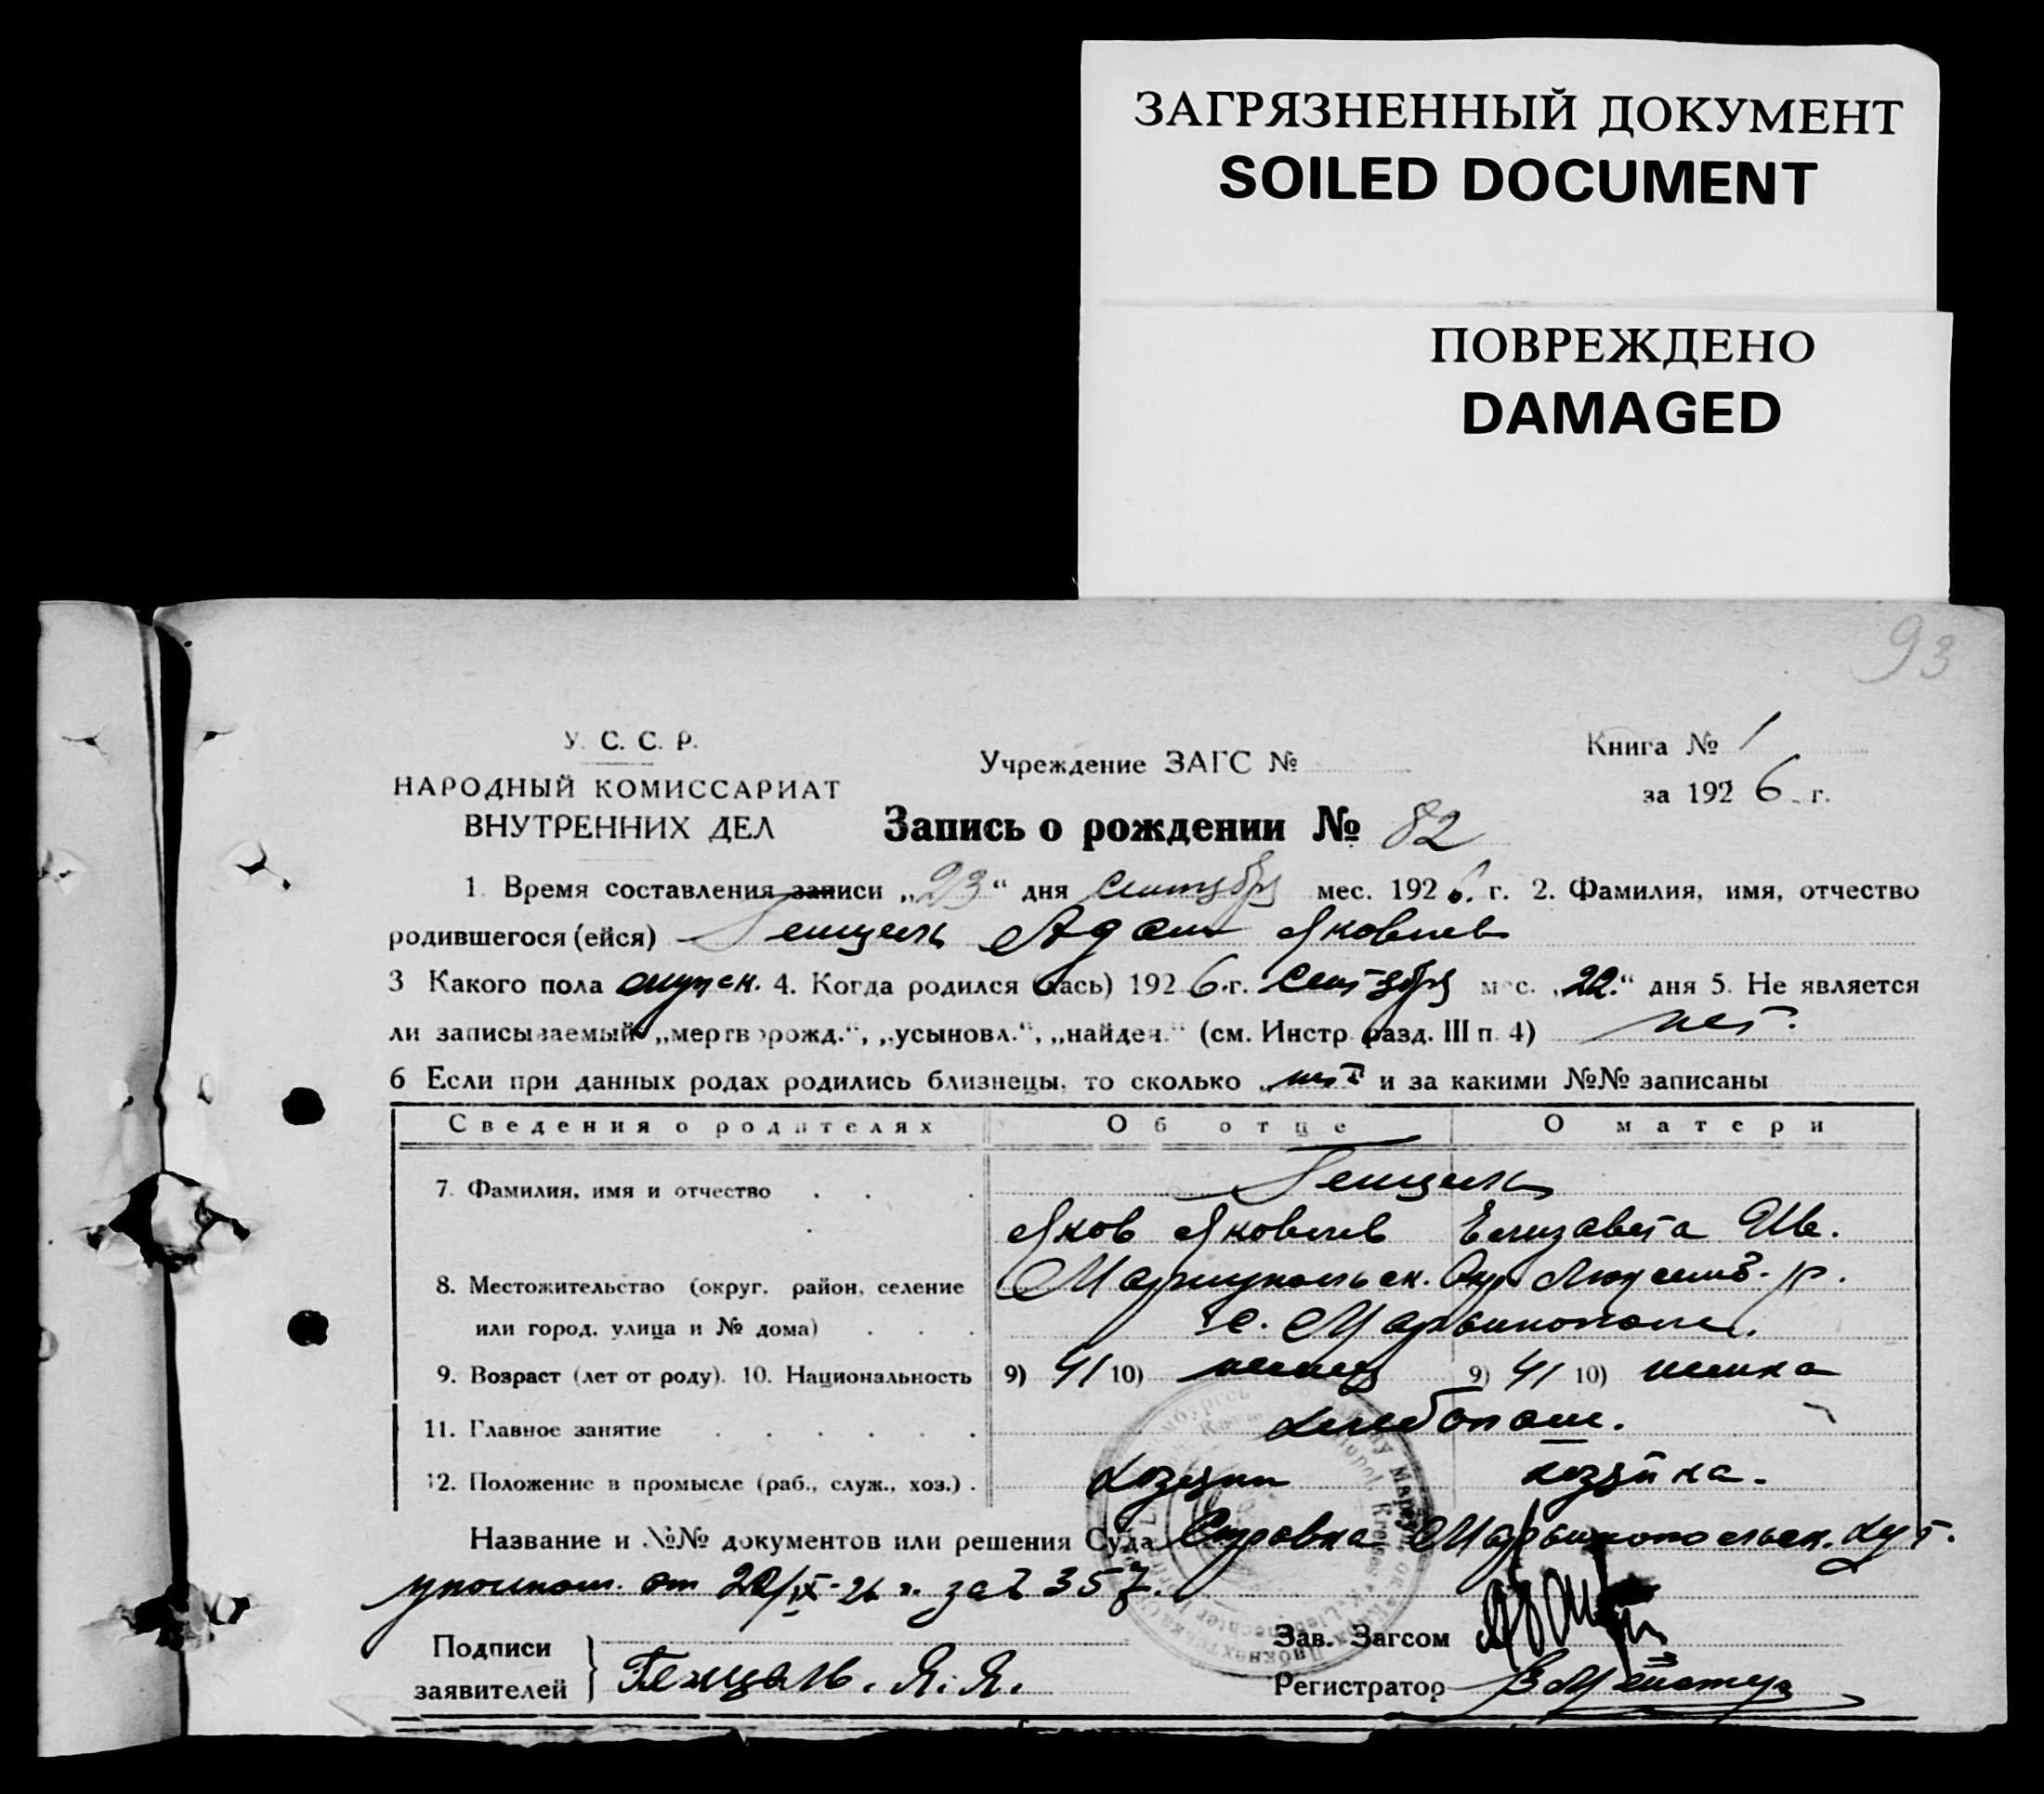 ЗАГРЯЗНЕННЫЙ ДОКУМЕНТ
SOILED DOCUMENT
ПОВРЕЖДЕНО
DAMAGED
93
У. С. С. Р.
НАРОДНЫЙ КОМИССАРИАТ
ВНУТРЕННИХ ДЕЛ
Учреждение ЗАГС №
Книга № 1
за 1926 г.
Запись о рождении № 82
1. Время составления записи „23“ дня сентября мес. 1926. г. 2. Фамилия, имя, отчество
родившегося (ейся) Генцель Адам Яковлев
3 Какого пола мужск. 4. Когда родился (лась) 1926.г. сентября мес. „22.“ дня 5. Не является
ли записываемый „мертворожд.“, „усыновл.“, „найден.“ (см. Инстр. разд. III п. 4) нет.
6 Если при данных родах родились близнецы, то сколько „нет и за какими №№ записаны
Сведения о родителях Об отце О матери
7. Фамилия, имя и отчество Генцель
Яков Яковлев Елизавета Ив.
8. Местожительство (округ, район, селение Мариупольск. Окр.
или город, улица и № дома) с. Марьинополь.
9. Возраст (лет от роду). 10. Национальность 9) 41 10) немец 9) 41 10) немка
11. Главное занятие хлебопаш.
12. Положение в промысле (раб., служ., хоз.) хозяин хозяйка.
Название и №№ документов или решения Суда Справка Марьинопольск. хут.
уполном. от 20/IX-26 г. за 357.
Подписи
заявителей Генцель. Я. Я.
Зав. Загсом
Регистратор